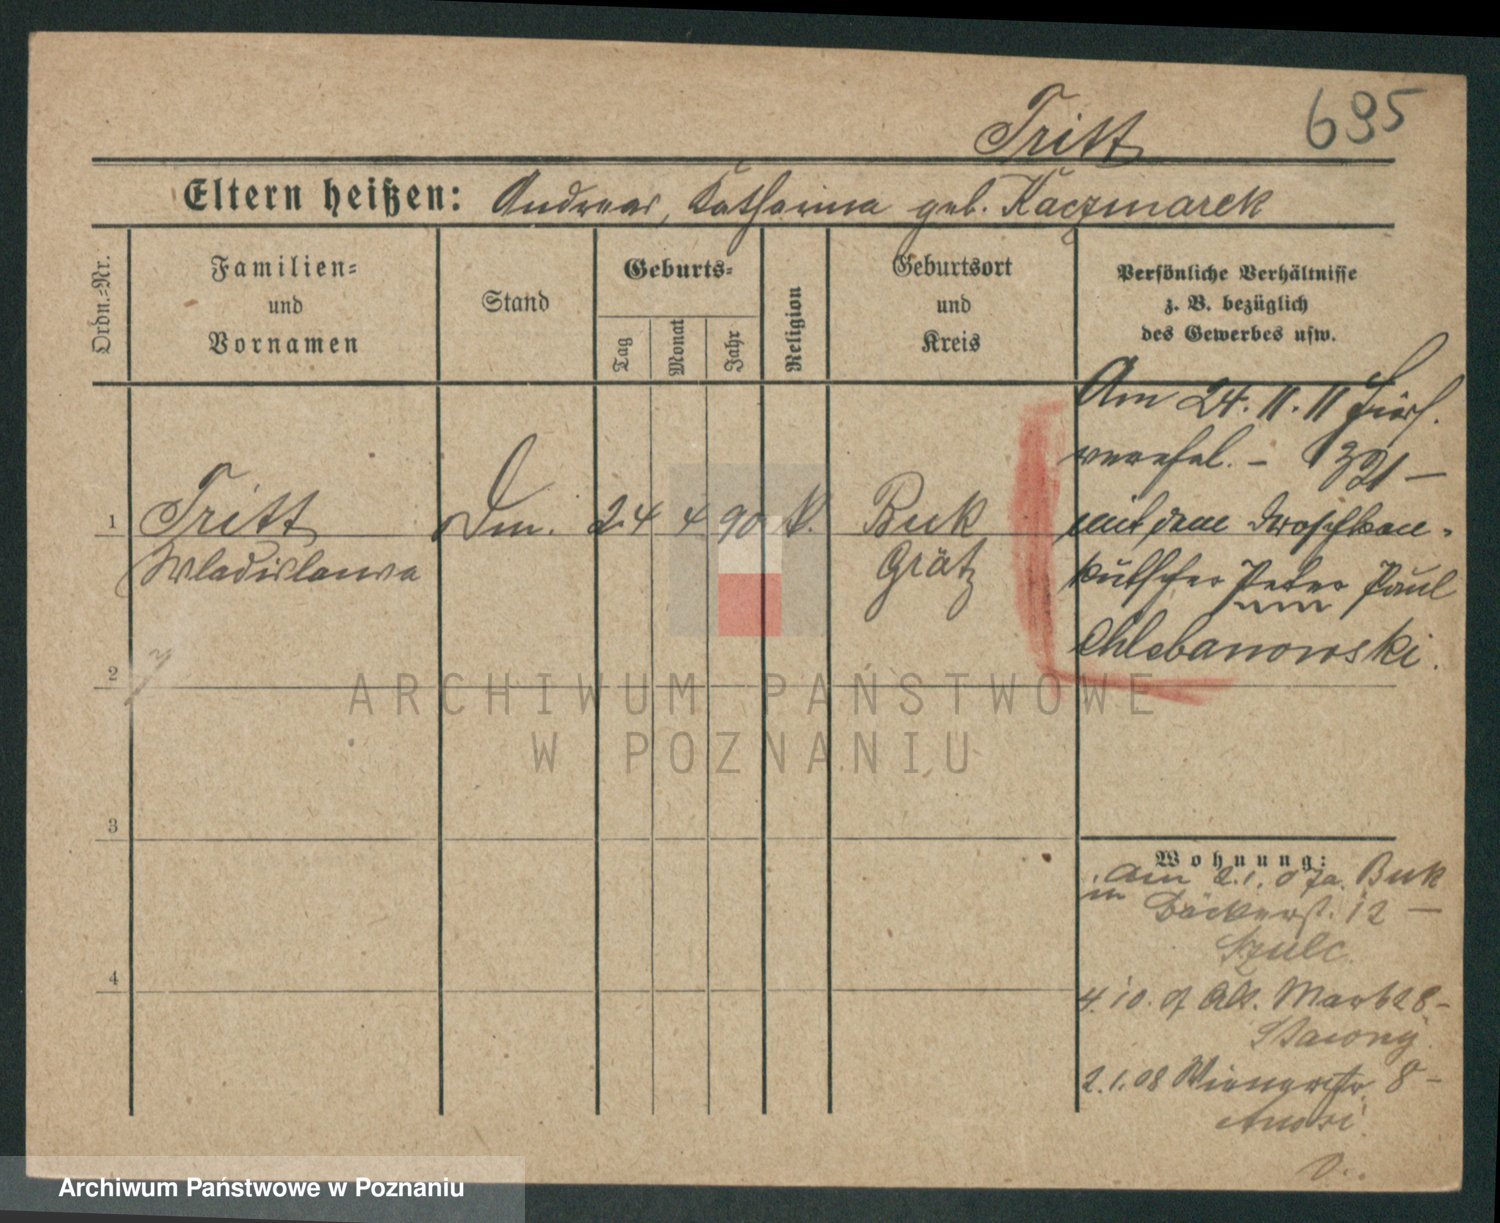 695
Tritt
Eltern heißen: Andreas, Katharina geb. Kaczmarek
Ordn.-Nr.
Familien-
und
Vornamen
Stand
Geburts-
Tag
Monat
Jahr
Religion
Geburtsort
und
Kreis
Persönliche Verhältnisse
z. B. bezüglich
des Gewerbes usw.
Am 24. 11. 11 hier
verehel. –
mit dem Droschken-
kutscher Peter Paul
Chlebanowski.
1
Tritt
Wladislawa
Dm.
24
4
90
K.
Buk
Grätz
2
3
4
Wohnung:
am 2.1.07 a. Buk
in Bäckerst. 12 –
Szulc.
4.10.07 Alt. Markt 28 –
2.1.08 Wienerstr. 8 –
ARCHIWUM PAŃSTWOWE
W POZNANIU
Archiwum Państwowe w Poznaniu